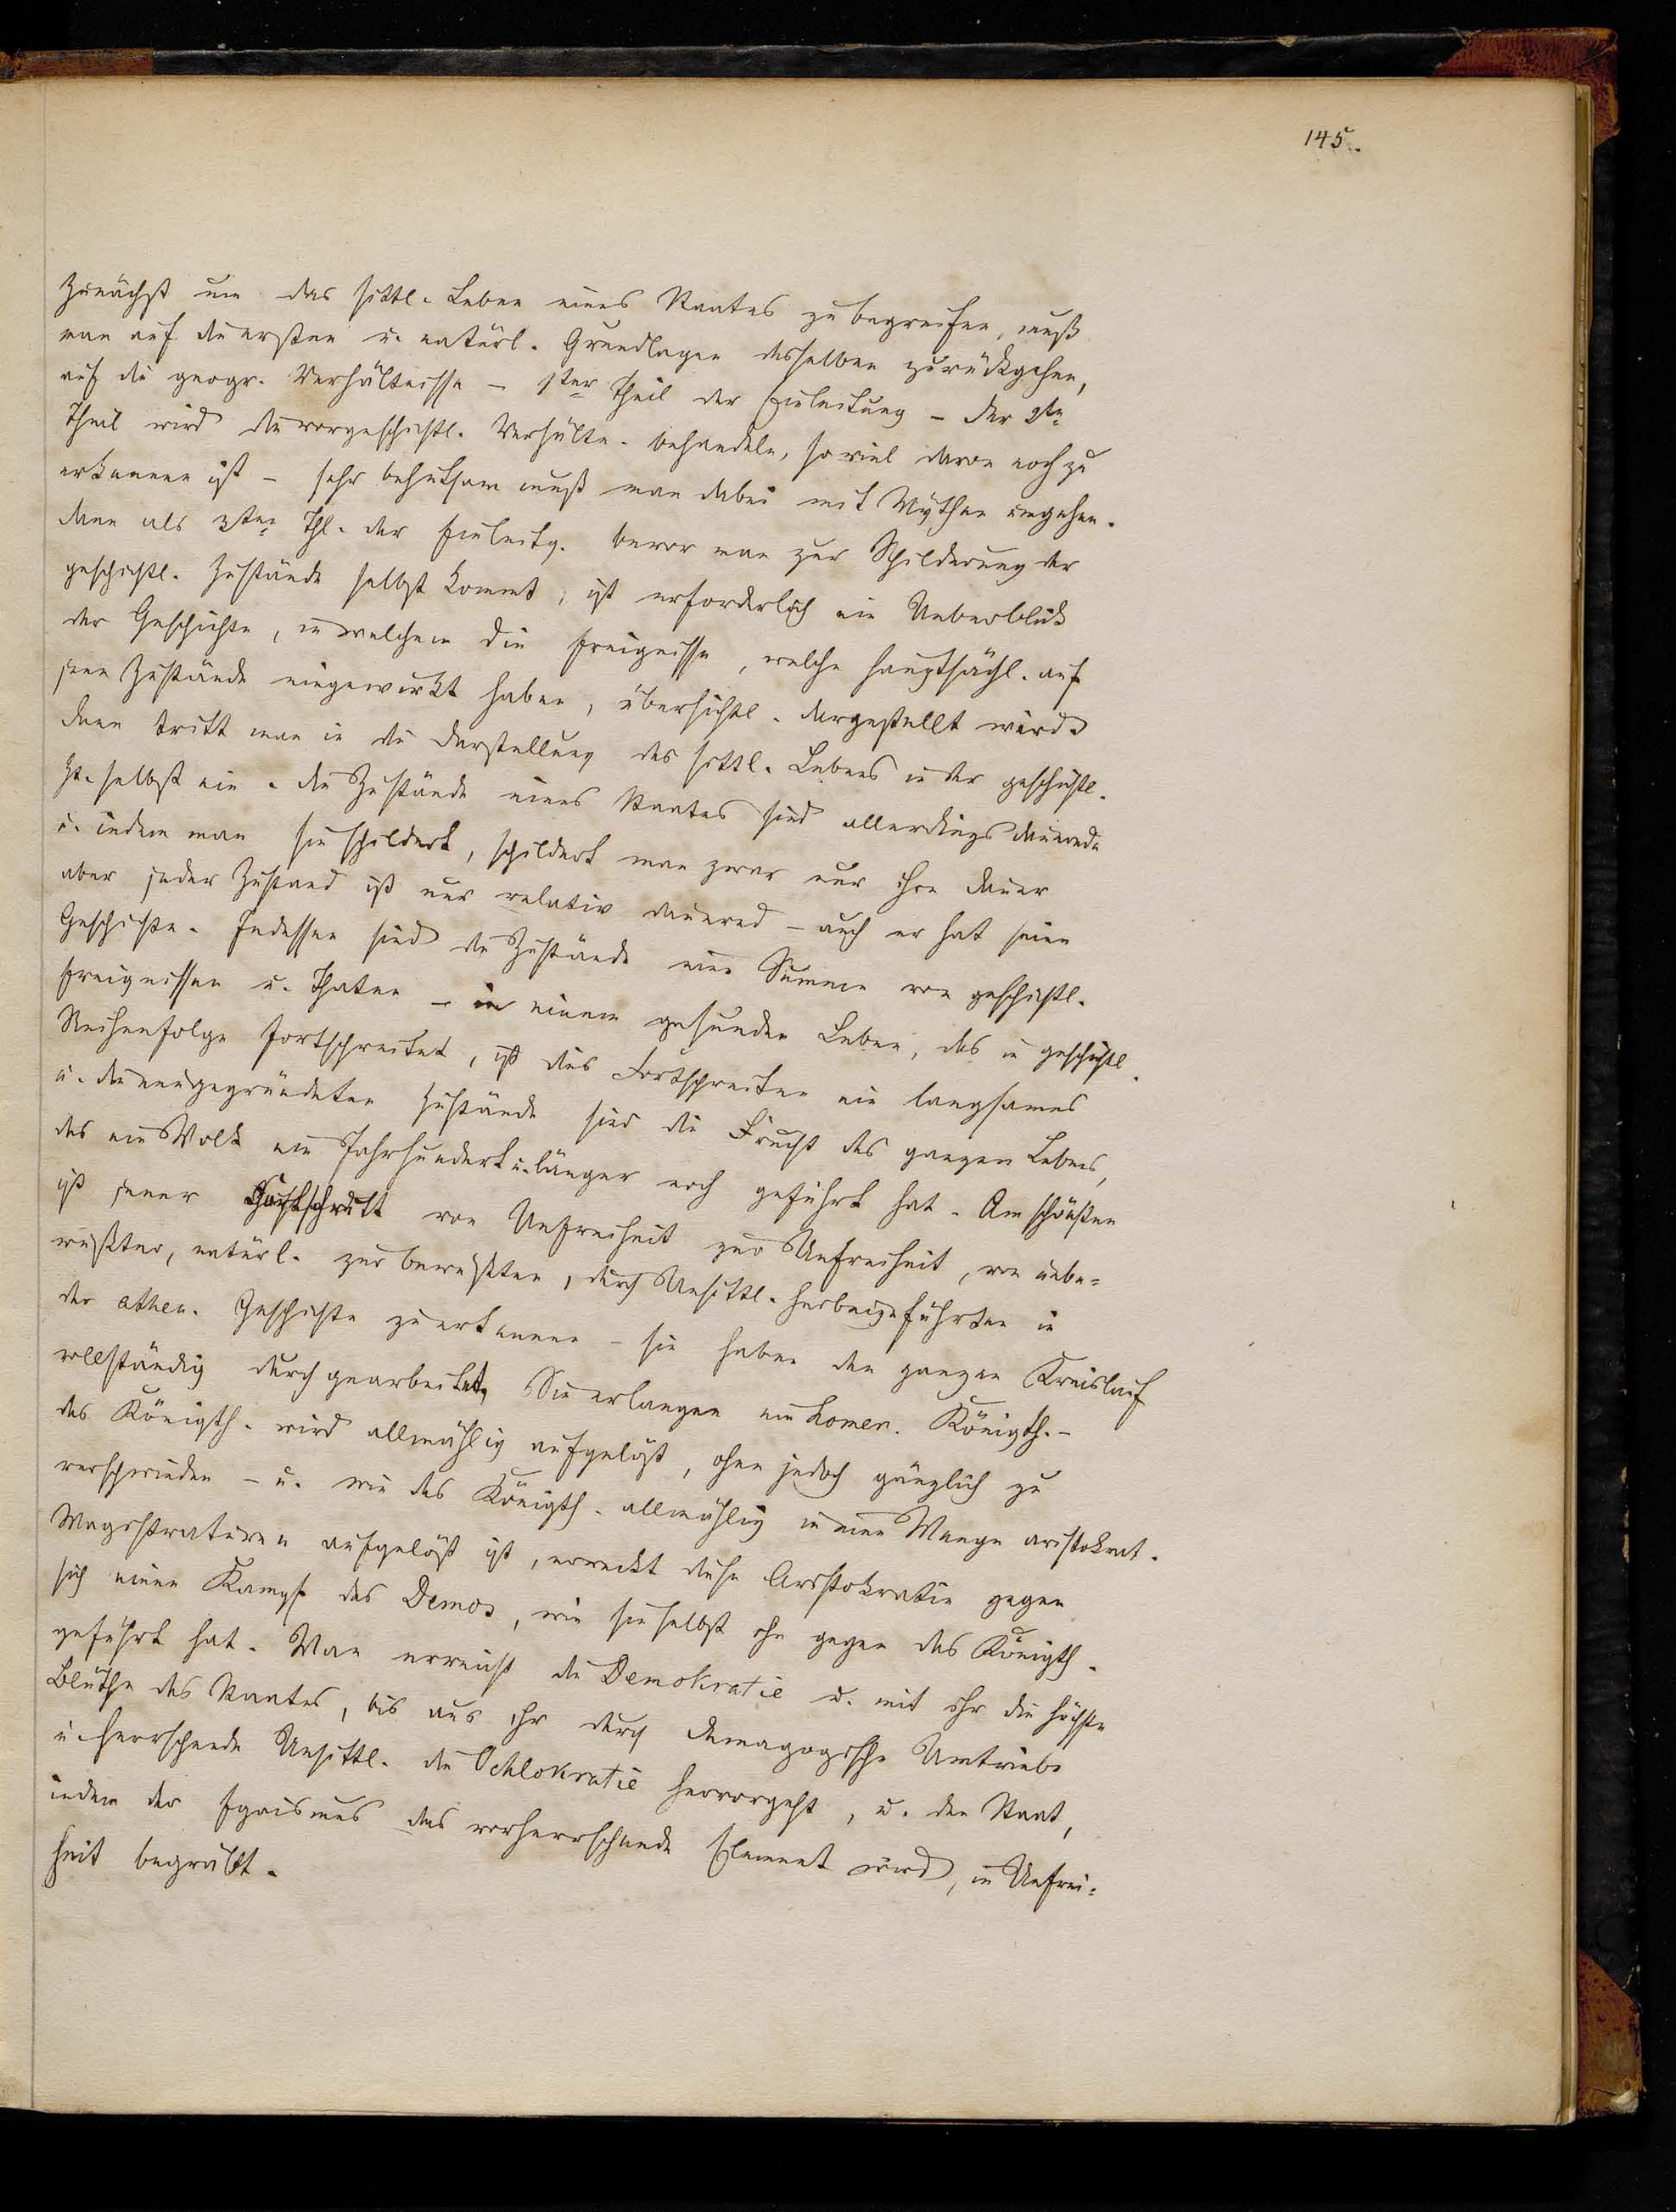 145.
Zunächst um das sittl. Leben eines Staates zu begreifen, muß
man auf die ersten u. natürl. Grundlagen desselben zurückgehen,
auf die geogr. Verhältnisse – 1ster Theil der Einleitung – Der 2te
Theil wird die vorgeschichtl. Verhältn. behandeln, so viel davon noch zu
erkennen ist – sehr behutsam muß man dabei mit Mythen umgehen.
Dann als 3ter Thl. der Einleitg. bevor man zur Schilderung der
geschichtl. Zustände selbst kommt, ist erforderlich ein Ueberblick
der Geschichte, in welchem die Ereignisse, welche hauptsächl. auf
jene Zustände eingewirkt haben, übersichtl. dargestellt wird
dann tritt man in die Darstellung des sittl. Lebens in der geschichtl.
Zt. selbst ein. Die Zustände eines Staates sind allerdings dauernde
u. indem man sie schildert, schildert man zwar nur ihre Dauer
aber jeder Zustand ist nur relativ dauernd – auch er hat seine
Geschichte. Indessen sind die Zustände eine Summe von geschichtl.
Ereignissen u. Thaten – in einem gesunden Leben, das in geschichtl.
Reihenfolge fortschreitet, ist dies Fortschreiten ein langsames
u. die neugegründeten Zustände sind die Frucht des ganzen Lebens,
das ein Volk ein Jahrhundert u. länger noch geführt hat. Am schönsten
ist jener Fortschritt von Unfreiheit zur Unfreiheit, von unbe=
wußter, natürl. zur bewußten, durch Unsittl. herbeigeführten in
der athen. Geschichte zu erkennen – sie haben den ganzen Kreislauf
vollständig durchgearbeitet, Sie erlangen ein homer. Königth. –
das Königth. wird allmählig aufgelöst, ohne jedoch gänzlich zu
verschwinden – u. wie das Königth. allmählig in eine Menge aristokrat.
Magistraturen aufgelöst ist, erweckt diese Aristokratie gegen
sich einen Kampf des Demos, wie sie selbst ihn gegen das Königth.
geführt hat. Man erreicht die Demokratie u. mit ihr die höchste
Blüthe des Staates, bis aus ihr durch demagogische Umtriebe
u. herrschende Unsittl. die Ochlokratie hervorgeht, u. den Staat,
indem der Egoismus das vorherrschende Element wird, in Unfrei=
heit begräbt.